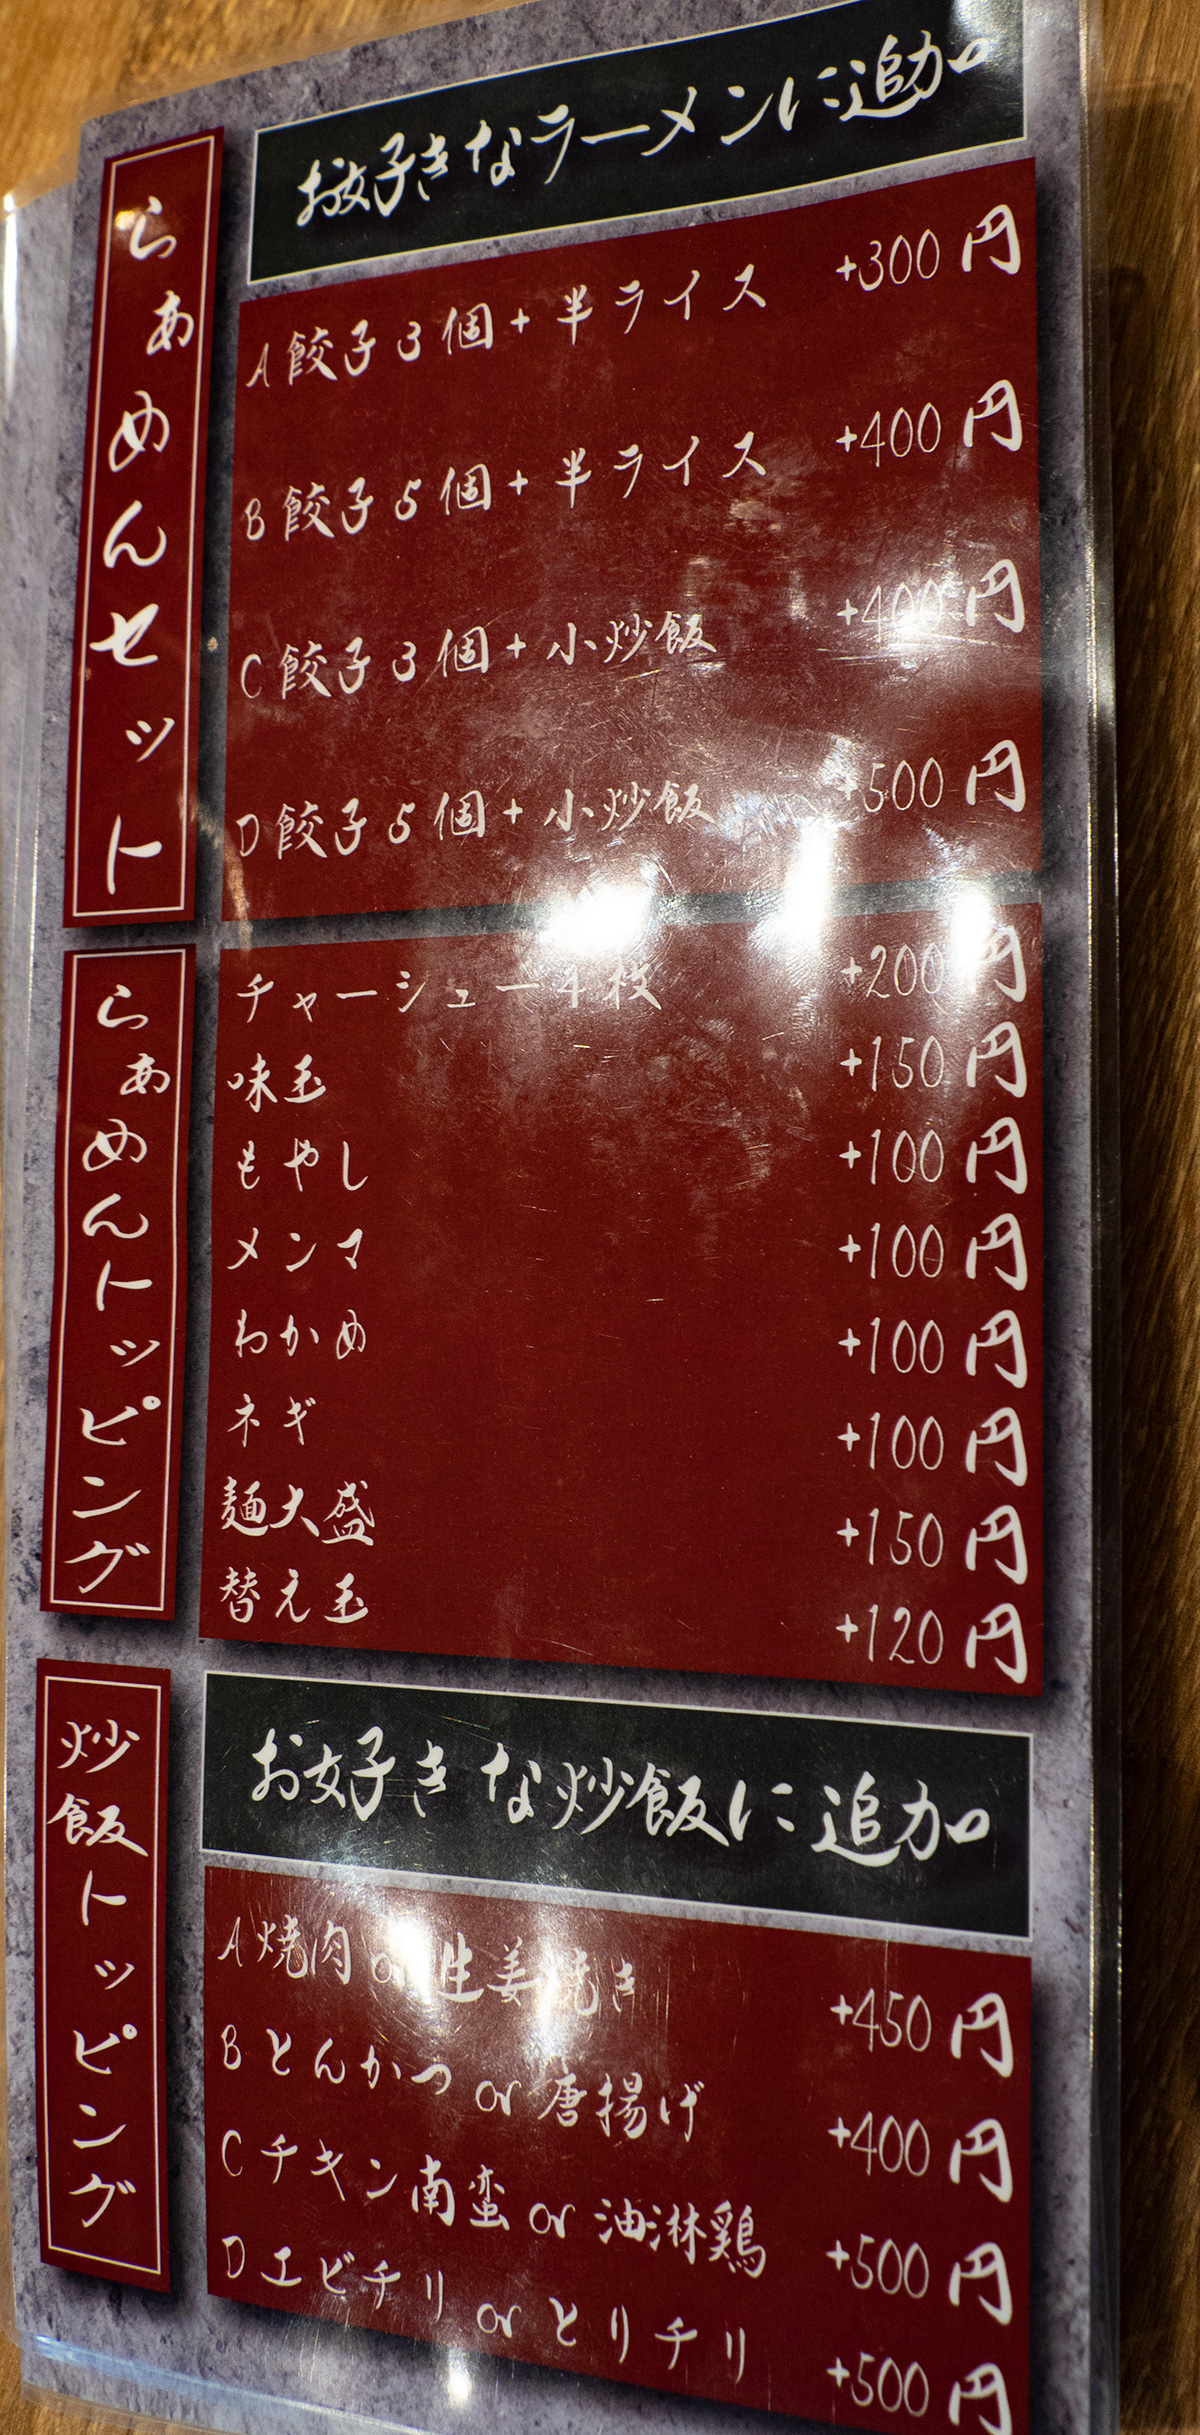 らぁめんセット
お好きなラーメンに追加
A 餃子3個+半ライス +300円
B 餃子5個+半ライス +400円
C 餃子3個+小炒飯 +400円
D 餃子5個+小炒飯 +500円
らぁめんトッピング
チャーシュー4枚 +200円
味玉 +150円
もやし +100円
メンマ +100円
わかめ +100円
ネギ +100円
麺大盛 +150円
替え玉 +120円
炒飯トッピング
お好きな炒飯に追加
A 焼肉 or 生姜焼き +450円
B とんかつ or 唐揚げ +400円
C チキン南蛮 or 油淋鶏 +500円
D エビチリ or とりチリ +500円